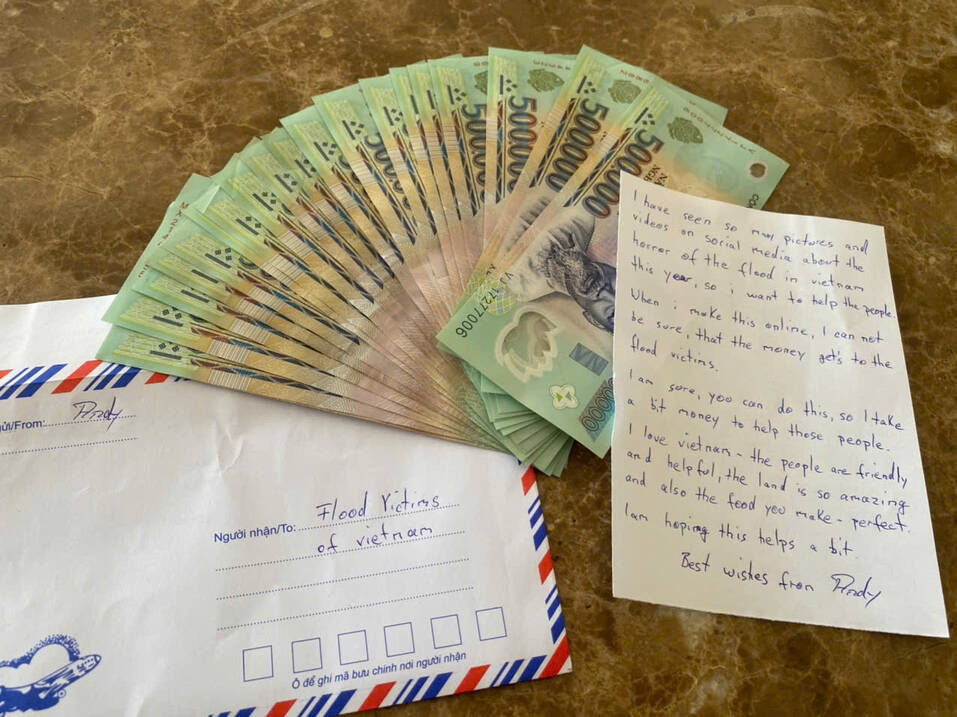 500000
500000
500000
500000
17277006
VIỆ
I have seen so many pictures and
videos on social media about the
horror of the flood in vietnam
this year, so i want to help the people.
When i make this online, I can not
be sure, that the money gets to the
flood victims.
I am sure, you can do this, so I take
a bit money to help those people.
I love vietnam - the people are friendly
and helpful, the land is so amazing
and also the food you make - perfect.
I am hoping this helps a bit
Best wishes from Andy
gửi/From: Andy
Người nhận/To: Flood Victims
of vietnam
Ô để ghi mã bưu chính nơi người nhận